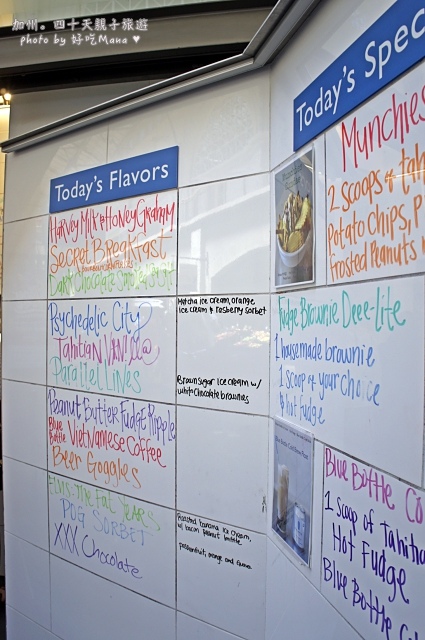 加州。四十天親子旅遊
photo by 好吃Mana ♥
Today's Flavors
Harvey Milk & Honey Graham
Secret Breakfast
Dark Chocolate
Psychedelic City
Tahitian Vanilla
Parallel Lines
Peanut Butter Fudge Ripple
Blue Bottle Vietnamese Coffee
Beer Goggles
Elvis: The Fat Years
POG SORBET
XXX Chocolate
Matcha ice cream, orange
ice cream & rasberry sorbet
Brown sugar ice cream w/
white chocolate brownies
Roasted banana ice cream
w/ bacon peanut brittle
passionfruit, orange and guava
Today's Spec
Munchies
2 scoops of tah
Potato Chips, P
Frosted Peanuts
Fudge Brownie Deee-lite
1 housemade brownie
1 scoop of your choice
& hot fudge
Blue Bottle Co
1 scoop of Tahitia
Hot Fudge
Blue Bottle